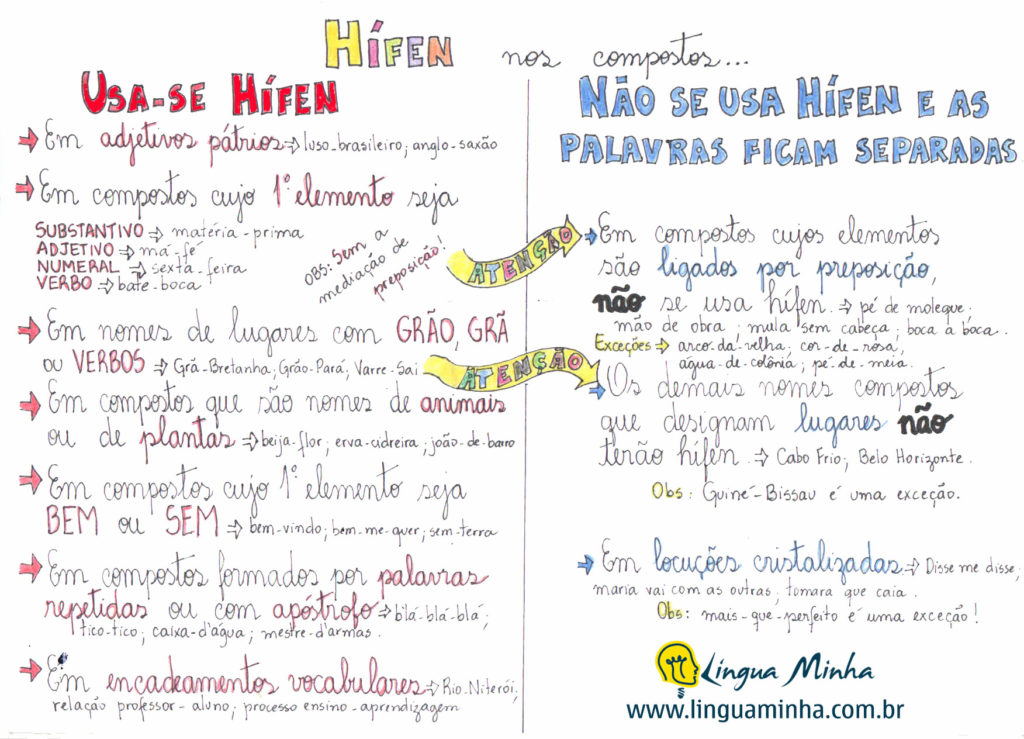 HÍFEN nos compostos...
USA-SE HÍFEN
➔ Em adjetivos pátrios ➔ luso-brasileiro; anglo-saxão
➔ Em compostos cujo 1º elemento seja
SUBSTANTIVO ➔ matéria-prima
ADJETIVO ➔ má-fé
NUMERAL ➔ sexta-feira
VERBO ➔ bate-boca
OBS: Sem a
mediação de
preposição!
➔ Em nomes de lugares com GRÃO, GRÃ
ou VERBOS ➔ Grã-Bretanha; Grão-Pará; Varre-Sai
➔ Em compostos que são nomes de animais
ou de plantas ➔ beija-flor; erva-cidreira; joão-de-barro
➔ Em compostos cujo 1º elemento seja
BEM ou SEM ➔ bem-vindo; bem-me-quer; sem-terra
➔ Em compostos formados por palavras
repetidas ou com apóstrofo ➔ blá-blá-blá;
tico-tico; caixa-d'água; mestre-d'armas.
➔ Em encadeamentos vocabulares ➔ Rio-Niterói;
relação professor-aluno; processo ensino-aprendizagem
NÃO SE USA HÍFEN E AS
PALAVRAS FICAM SEPARADAS
ATENÇÃO
➔ Em compostos cujos elementos
são ligados por preposição,
não se usa hífen. ➔ pé de moleque;
mão de obra; mula sem cabeça; boca a boca.
Exceções ➔ arco-da-velha; cor-de-rosa;
água-de-colônia; pé-de-meia.
ATENÇÃO
➔ Os demais nomes compostos
que designam lugares não
terão hífen. ➔ Cabo Frio; Belo Horizonte.
Obs: Guiné-Bissau é uma exceção.
➔ Em locuções cristalizadas ➔ Disse me disse;
maria vai com as outras; tomara que caia.
Obs: mais-que-perfeito é uma exceção!
Língua Minha
www.linguaminha.com.br